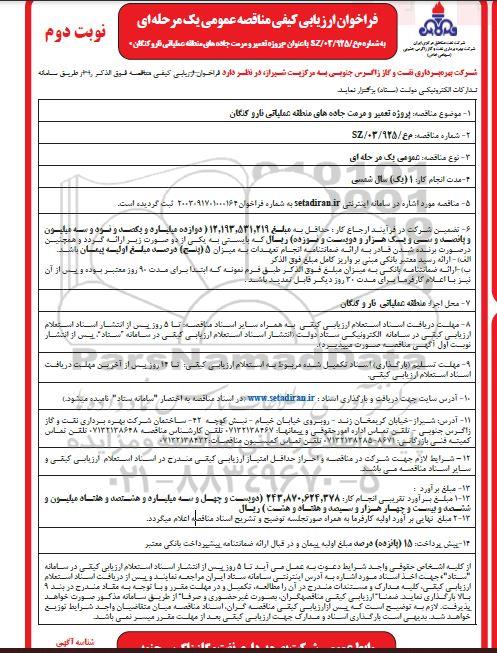 نوبت دوم
فراخوان ارزیابی کیفی مناقصه عمومی یک مرحله ای
به شماره م ع/SZ/۰۳/۹۲۵ با عنوان «پروژه تعمیر و مرمت جاده های منطقه عملیاتی نار و کنگان»
شرکت بهره برداری نفت و گاز زاگرس جنوبی به مرکزیت شیراز، در نظر دارد فراخوان ارزیابی کیفی مناقصه فوق الذکر را از طریق سامانه
تدارکات الکترونیکی دولت (ستاد) برگزار نماید.
۱- موضوع مناقصه: پروژه تعمیر و مرمت جاده های منطقه عملیاتی نار و کنگان
۲- شماره مناقصه: م ع/SZ/۰۳/۹۲۵
۳- نوع مناقصه: عمومی یک مرحله ای
۴- مدت انجام کار: ۱ (یک) سال شمسی
۵- مناقصه مورد اشاره در سامانه اینترنتی setadiran.ir به شماره فراخوان ۲۰۰۳۰۹۱۷۰۱۰۰۰۱۶۴ ثبت گردیده است.
۶- تضمین شرکت در فرآیند ارجاع کار: حداقل به مبلغ ۱۲,۱۹۳,۵۳۱,۲۱۹ (دوازده میلیارد و یکصد و نود و سه میلیون
و پانصد و سی و یک هزار و دویست و نوزده) ریال که بایستی به یکی از دو صورت زیر ارائه گردد و همچنین
در صورت برنده شدن قادر به ارائه ضمانتنامه انجام تعهدات به میزان ۵ (پنج) درصد مبلغ اولیه پیمان باشد.
الف- ارائه رسید معتبر بانکی مبنی بر واریز کامل مبلغ فوق الذکر
ب)- ارائه ضمانتنامه بانکی به میزان مبلغ فوق الذکر طبق فرم نمونه که ابتدا برای مدت ۹۰ روز معتبر بوده و پس از آن
نیز با اعلام کارفرما برای مدت ۳۰ روز دیگر قابل تمدید باشد.
۷- محل اجرا: منطقه عملیاتی نار و کنگان
۸- مهلت دریافت اسناد استعلام ارزیابی کیفی به همراه سایر اسناد مناقصه: تا ۵ روز پس از انتشار اسناد استعلام
ارزیابی کیفی در سامانه الکترونیکی ستاد دولت (انتشار اسناد استعلام ارزیابی کیفی در سامانه "ستاد"، پس از انتشار
نوبت اول آگهی مناقصه صورت میپذیرد).
۹- مهلت تسلیم (بارگذاری) اسناد تکمیل شده مربوط به استعلام ارزیابی کیفی: تا ۱۴ روز پس از آخرین مهلت دریافت
اسناد استعلام ارزیابی کیفی.
۱۰- آدرس سایت جهت دریافت و بارگذاری اسناد: www.setadiran.ir (در اسناد مناقصه به اختصار "سامانه ستاد" نامیده میشود.)
۱۱- آدرس: شیراز- خیابان کریمخان زند- روبروی خیابان خیام - نبش کوچه ۴۲- ساختمان شرکت بهره برداری نفت و گاز
زاگرس جنوبی - تلفن تماس اداره امور حقوقی و پیمانها: ۰۷۱۳۲۱۳۸۴۶۷ تلفن کارشناس مناقصه ۰۷۱۳۲۱۳۸۶۴۸ تلفن تماس
کمیته فنی بازرگانی: ۸۶۷۱-۰۷۱۳۲۱۳۸۲۸۵ تلفن تماس کمیسیون مناقصات: ۰۷۱۳۲۱۳۸۴۳۲
۱۲- شرایط لازم جهت شرکت در مناقصه و احراز حداقل امتیاز ارزیابی کیفی مندرج در اسناد استعلام ارزیابی کیفی و
سایر اسناد مناقصه می باشد.
۱۳- مبلغ برآورد:
۱-۱۳ مبلغ برآورد تقریبی انجام کار: ۲۴۳,۸۷۰,۶۲۴,۳۷۸ (دویست و چهل و سه میلیارد و هشتصد و هفتاد میلیون و
ششصد و بیست و چهار هزار و سیصد و هفتاد و هشت) ریال
۲-۱۳ مبلغ نهایی برآورد اولیه کارفرما به همراه صورتجلسه توضیح و تشریح اسناد مناقصه اعلام میگردد.
۱۴- پیش پرداخت: ۱۵ (پانزده) درصد مبلغ اولیه پیمان و در قبال ارائه ضمانتنامه پیشپرداخت بانکی معتبر
از کلیه اشخاص حقوقی واجد شرایط دعوت به عمل می آید تا ۵ روز پس از انتشار اسناد استعلام ارزیابی کیفی در سامانه
"ستاد"، جهت اخذ اسناد مورد اشاره به آدرس اینترنتی سامانه ستاد ایران مراجعه نمایند و پس از دریافت اسناد استعلام
ارزیابی کیفی، کلیه مدارک و مستندات مندرج در آن را مطالعه و تکمیل، و در مهلت مقرر و با توجه به مفاد مندرج در بند ۹
بالا بارگذاری نماید. ضمنا" ارزیابی کیفی مناقصهگران، بصورت غیرحضوری و صرفا" از طریق سامانه مذکور صورت خواهد
پذیرفت. لازم به توضیح است که پس ازارزیابی کیفی مناقصه گران، اسناد مناقصه میان متقاضیان واجد شرایط توزیع
خواهد شد. بدیهی است بارگذاری اسناد و مدارک جهت ارزیابی کیفی بعد از مهلت مقرر میسر نمی باشد.
شناسه آگهی
ParsNamadData
۰۲۱-۸۸۳۴۹۶۷۰-۵